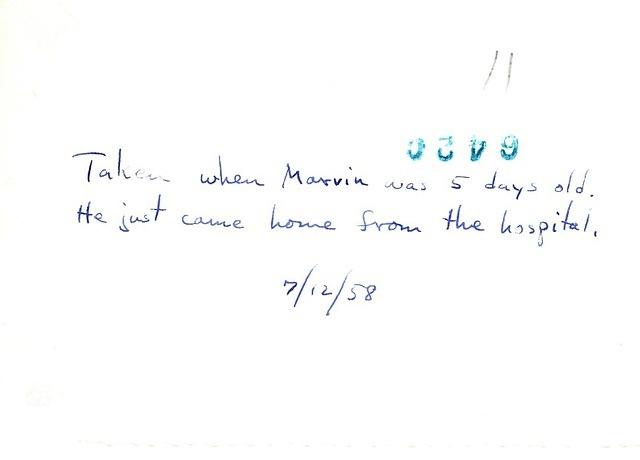 Taken when Marvin was 5 days old.
He just came home from the hospital.
7/12/58